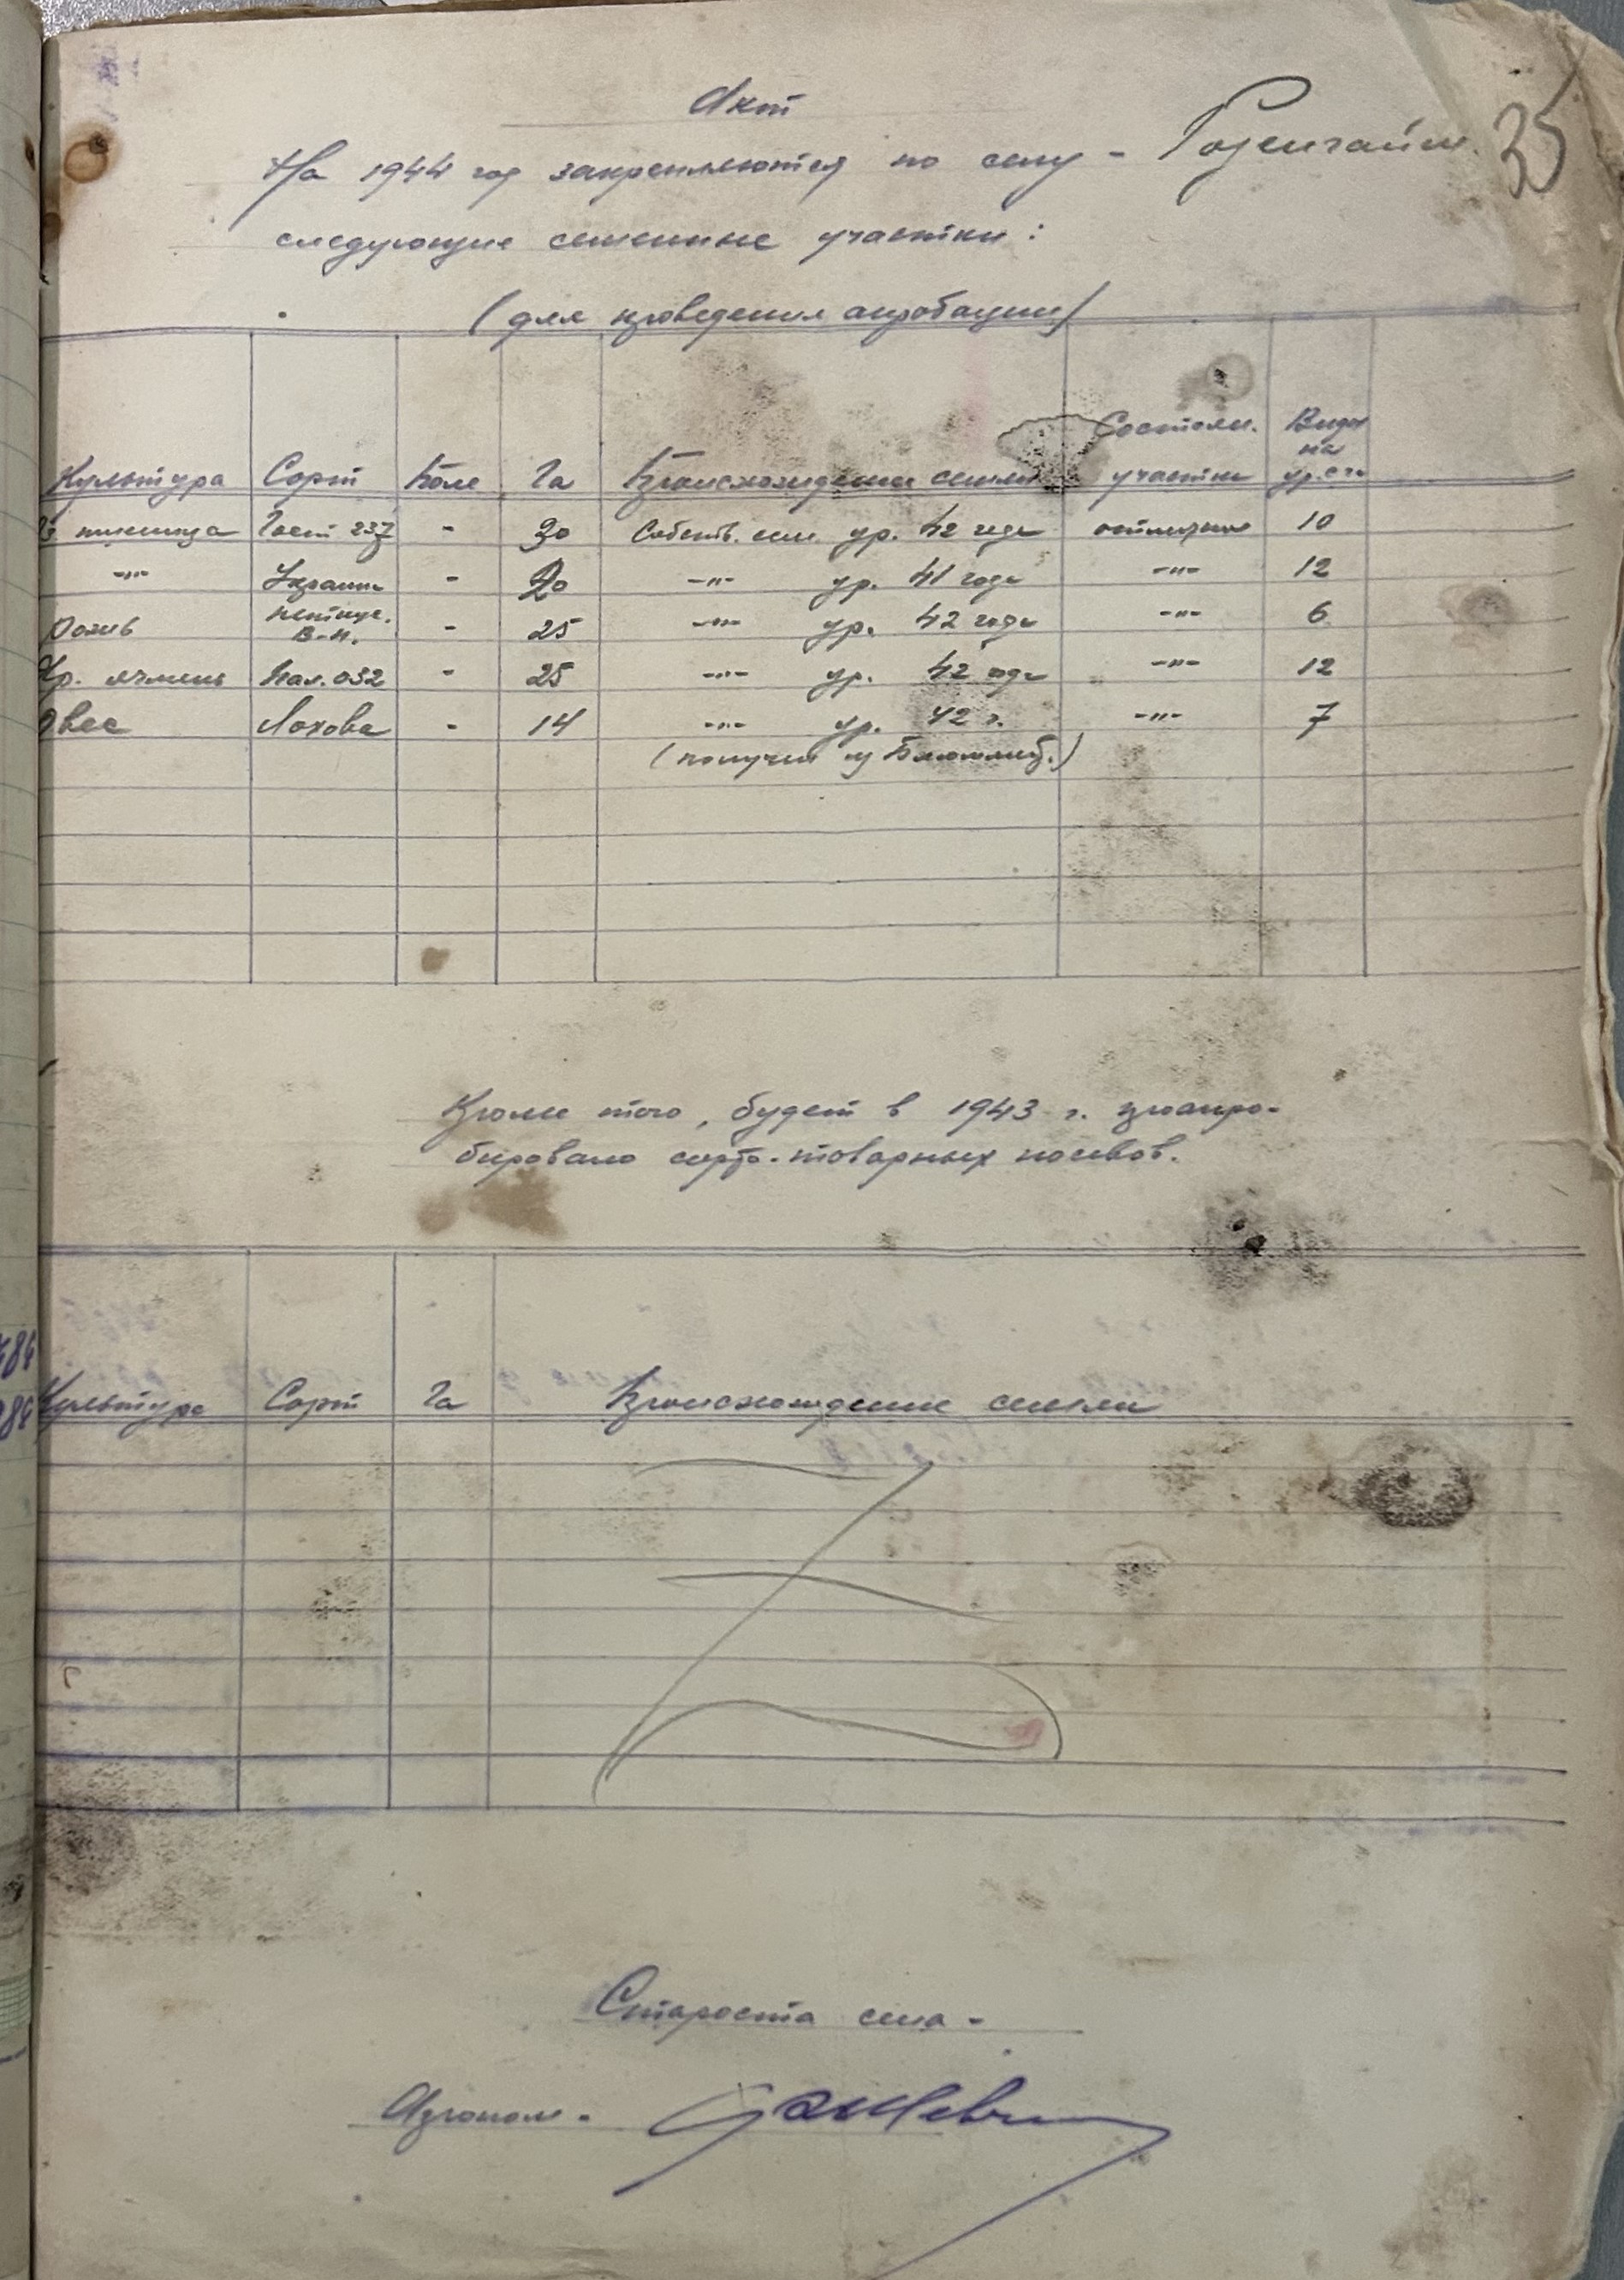 35
Акт
На 1944 год закрепляются по селу - Розенгайм.
следующие семенные участки:
(для проведения апробации)
Культура Сорт Поле Га Происхождение семян Состоян. участка Виды на ур. с га
пшеница Гост 237 - 30 Собств. сем. ур. 42 года отличное 10
-"- Украин. - 20 -"- ур. 41 года -"- 12
Рожь В-Н. - 25 -"- ур. 42 года -"- 6
Яр. ячмень Пал. 032 - 25 -"- ур. 42 года -"- 12
Овес Лохова - 14 -"- ур. 42 г. -"- 7
(получен из )
Кроме того, будет в 1943 г. проапро-
бировано сорто-товарных посевов.
Культура Сорт Га Происхождение семян
Староста села -
Агроном -